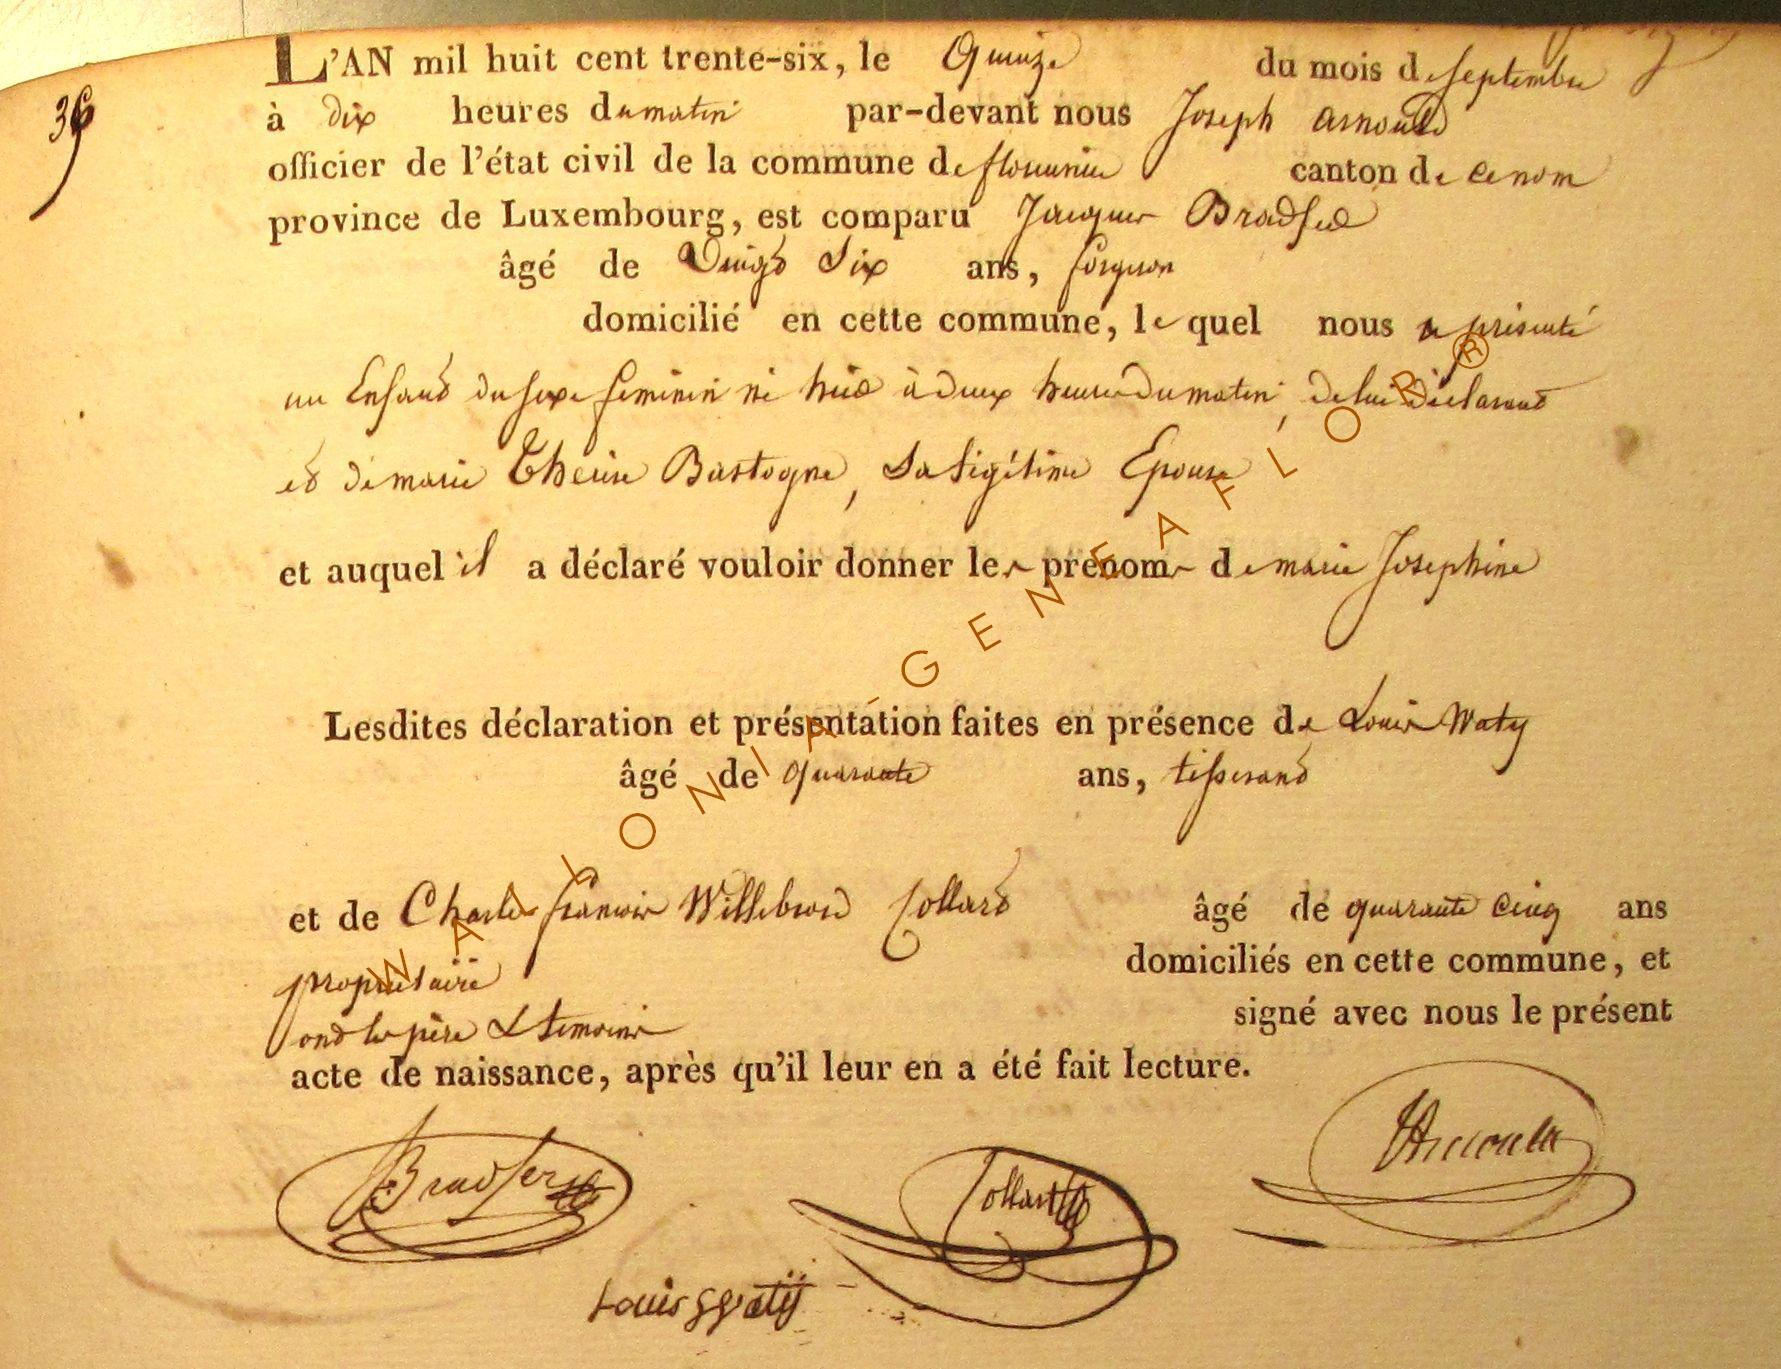 36
L'AN mil huit cent trente-six, le Quinze du mois de septembre
à dix heures du matin par-devant nous Joseph Arnould
officier de l'état civil de la commune de florenville canton de ce nom
province de Luxembourg, est comparu Jacques Bradfer
âgé de Vingt Six ans, forgeron
domicilié en cette commune, le quel nous a présenté
un Enfant du sexe feminin né hier à deux heures du matin, de lui déclarant
et de marie Therese Bastogne, Sa Légitime Epouse
et auquel il a déclaré vouloir donner les prénoms de marie Josephine
Lesdites déclaration et présentation faites en présence de Louis Waty
âgé de quarante ans, tisserand
et de Charles francois Willebrord Collard âgé de quarante cinq ans
propriétaire domiciliés en cette commune, et
ont les père & temoins signé avec nous le présent
acte de naissance, après qu'il leur en a été fait lecture.
Bradfer Collard Arnould
Louis Watij
WALLONIA-GENEAFLOR®